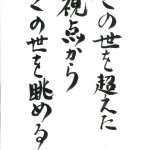 この世を超えた
視点から
この世を眺める